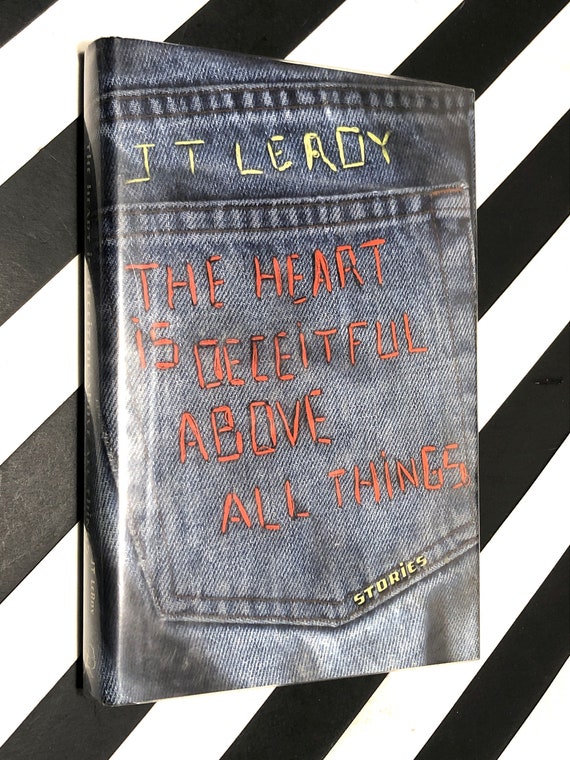 JT LEROY
THE HEART
iS DECEiTFUL
ABOVE
ALL THiNGS
STORiES
JT LeRoy